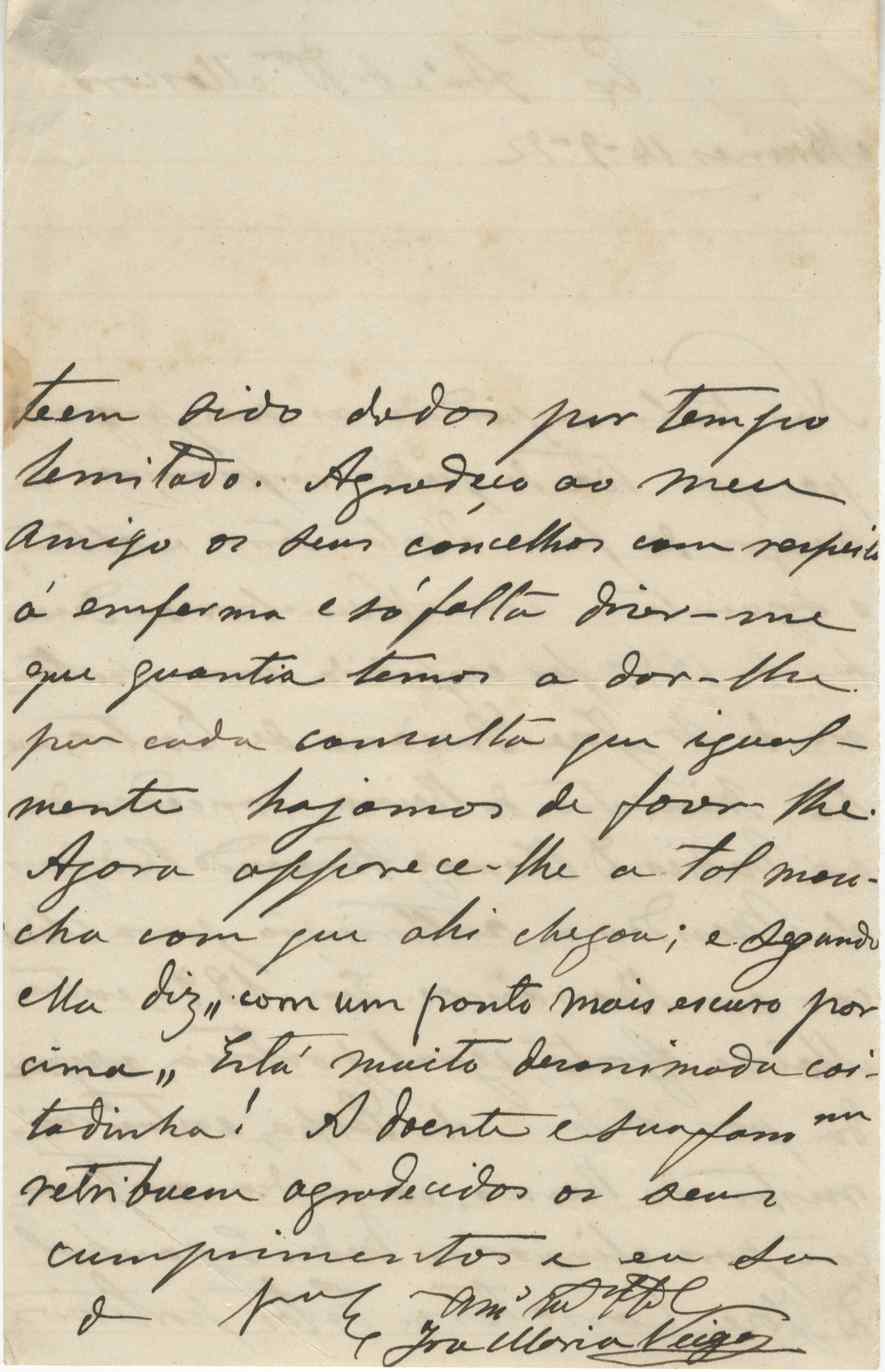 teem sido dados por tempo
lemitado. Agradeço ao meu
Amigo os seus cóncelhos com respeito
á emferma e só falta dizer-me
que quantia temos a dar-lhe
por cada consulta que igual-
mente hajamos de fazer-lhe.
Agora apparece-lhe a tal man-
cha com que ahi chegou; e segundo
ella diz „com um ponto mais escuro por
cima„ Está muito desanimada coi-
tadinha! A doente e sua fam
retribuem agradecidos os seus
cumprimentos e eu sou
d
José Maria Veiga